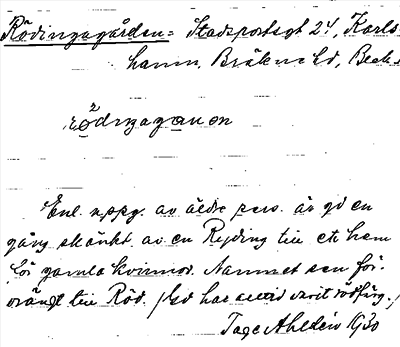 Rödingagården = Stadsportsgt 24, Karls-
hamn, Bräkne hd, Blek
rödɩŋagɑɳen
Enl. uppg. av äldre pers. är gd en
gång skänkt av en Ryding till ett hem
för gamla kvinnor. Namnet sen för-
vrängt till Röd. Gd har alltid varit rödfärg.
Tage Ahldén 1930